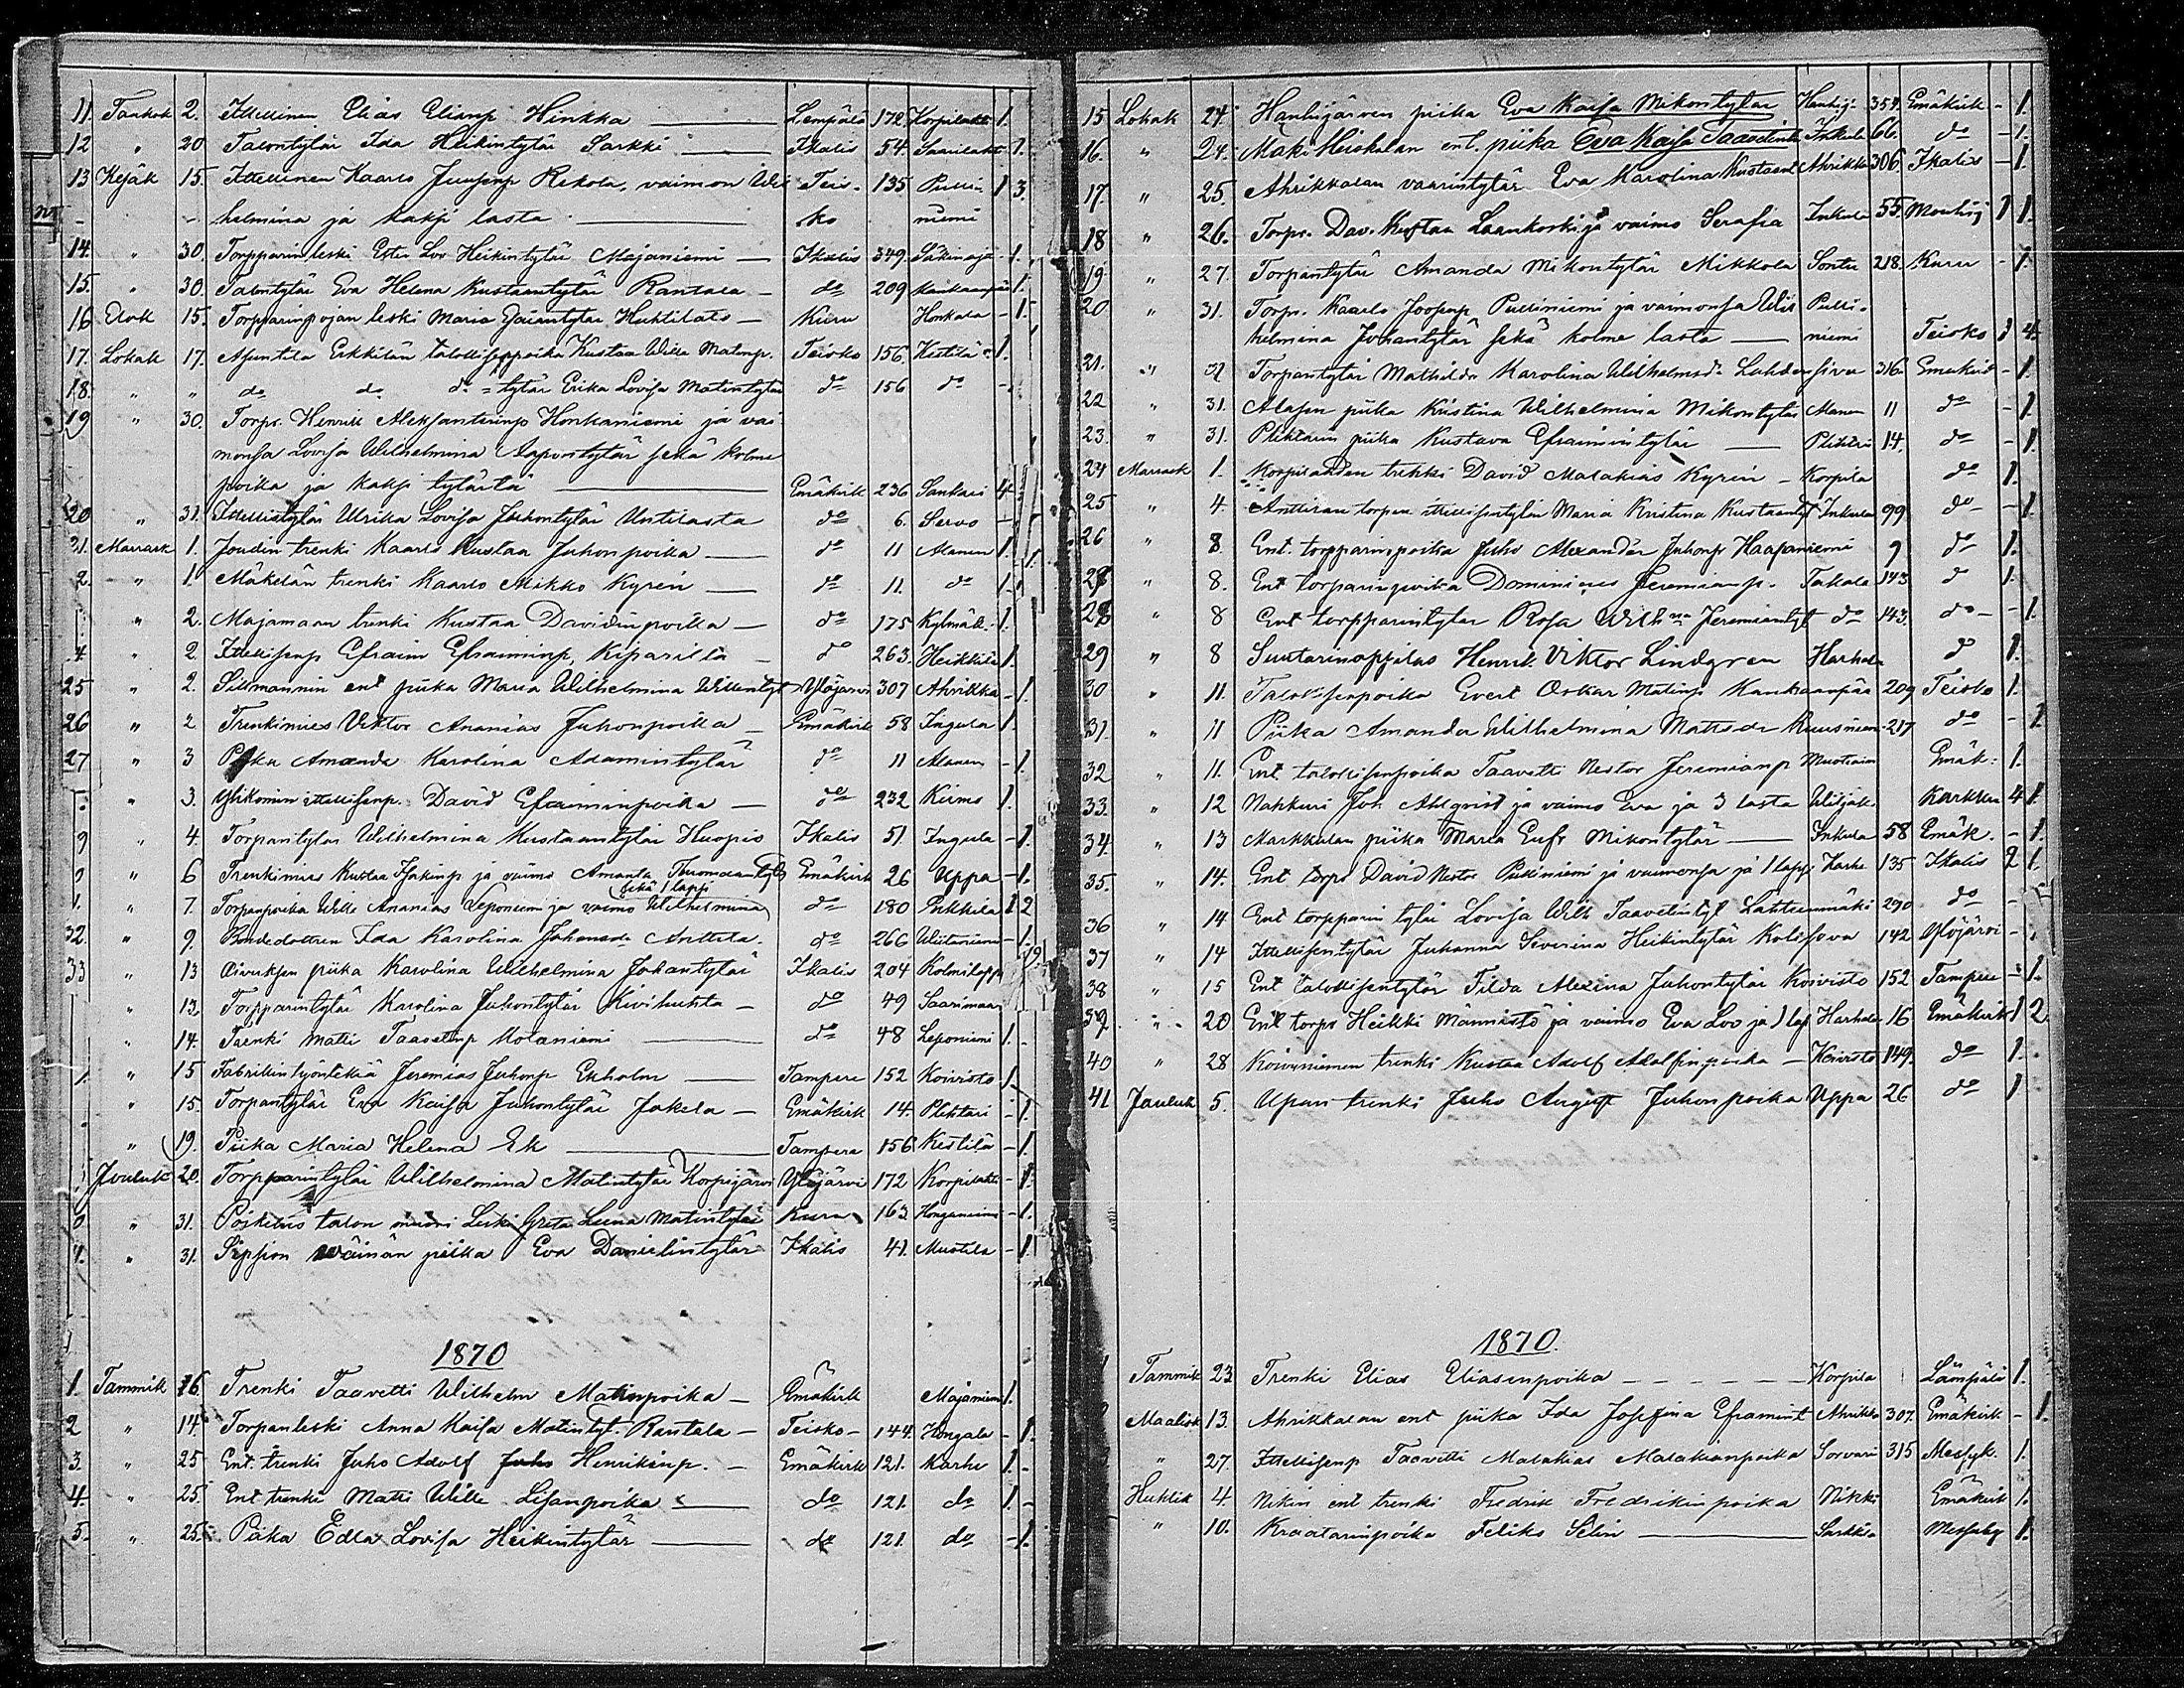 11. Toukok 2. Itsellinen Elias Eliasp Hinkka — Lempälä 172 Korpilahti 1.
12 " 20 Talontytär Ida Heikintytär Sarkki — Ikalis 54. Saarilahti 1.
13 Kesäk 15. Itsellinen Kaarlo Juusenp Rekola, vaimon Wil Teis- 135 Pulli- 1 3.
helmina ja kaksi lasta — ko niemi
14. " 30. Torpparin leski Ester Lov Heikintytär Majaniemi — Ikalis 349. 1.
15. " 30. Talontytär Eva Helena Kustaantytär Rantala — do 209 Kankaanpää 1.
16 Elok 15. Torpparinpojan leski Maria Huhtilats — Kuru Honkala - 1.
17. Lokak 17. Erkkilän talollisenpoika Kustaa Wille Matinp. Teisko 156. Kestilä 1.
18. " " do do do tytär Erika Lovisa Matintytär do 156 do -
19 " 30. Torpr. Henrik Aleksanterinp Honkaniemi ja vai
monsa Lovisa Wilhelmina Aapontytär sekä kolme
poika ja kaksi tytärtä — Emäkirk 236 Sankari 4
20 " 31. Itsellistytär Ulrika Lovisa Juhontytär Uutilasta do 6. Servo -
21. Marrask 1. Joudin trenki Kaarlo Kustaa Juhonpoika — do 11 Alanen 1.
2. " 1. Mäkelän trenki Kaarlo Mikko Kyrén — do 11. do 1.
" 2. Majamaan trenki Kustaa Davidinpoika — do 175 Kylmäl. 1.
4. " 2. Itsellisenp Efraim Efraiminp, Kiparilta — do 263. Heikkilä 1.
25 " 2. Sillmannin ent piika Maria Wilhelmina Willentyt Ylöjärvi 307 Ahrikka - 1.
26 " 2 Trenkimies Viktor Ananias Juhonpoika — Emäkirk 58 Ingula 1.
27 " 3 Piika Amanda Karolina Adamintytär do 11 Alanen - 1.
" 3. Ylikomin itsellisenp. David Efraiminpoika — do 232 Kirmo 1.
9 " 4. Torpantytar Wilhelmina Kustaantytär Huopio Ikalis 51. Ingula - 1.
" 6 Trenkimies Kustaa Isakinp ja vaimo Amanda Tuomaantytr Emäkirk 26 Uppa - 1.
sekä 1 lapsi
1. " 7. Torpanpoika Wille Ananias Leponiemi ja vaimo Wilhelmina do 180 Pirkkila 1 2
32. " 9. Bondedottren Ida Karolina Johansdr Anttila. do 266 - 1.
33 " 13 piika Karolina Wilhelmina Johantytär Ikalis 204 Kolmilappi
" 13. Torpparintytär Karolina Juhontytär Kivihuhta — do 49 Saarimaa
" 14. Trenki Matti Taavetinp Molaniemi — do 48 Leponiemi 1.
" 15 Fabrikin työntekiä Jeremias Juhonp Ekholm — Tampere 152 Koivisto 1.
" 15. Torpantytär Eva Kaisa Juhontytär Jakela — Emäkirk 14. Plihtari - 1.
" 19. Piika Maria Helena Ek — Tampere 156 Kestilä - 1.
Jouluk 20. Torpparintytär Wilhelmina Matintytär Korpijärvi Ylöjärvi 172 Korpilahti - 1.
" 31. Poikelus talon muori Leski Greta Leena Matintytär Kuru 163 Honganiemi - 1.
" 31. Sipsion Wäinän piika Eva Danielintytär Ikalis 41. Mustila - 1.
1870
1. Tammik 16. Trenki Taavetti Wilhelm Matinpoika — Emäkirk Majaniemi 1.
2 " 14. Torpanleski Anna Kaisa Matintyt. Rantala — Teisko - 144. Hongala - 1.
3. " 25 Ent. trenki Juho Adolf Juho Henrikinp. — Emäkirk 121. Karhe 1 -
4. " 25. Ent trenki Matti Wille Lisanpoika — do 121. do 1. -
5. " 25. Piika Edla Lovisa Heikintytär — do 121. do - 1.
15 Lokak 24. Hanhijärven piika Eva Kaisa Mikontytär Hanhij. 354. Emäkirk - 1.
16. " 24. Mäki Heiskalan ent. piika Eva Kaisa Taavetint Inkula 66. do - 1.
17. " 25. Ahrikkalan vaarintytär Eva Karolina Kustaant Ahrikka 306. Ikalis - 1.
18 " 26. Torpr. Dav. Kustaa Laankoski ja vaimo Serafia Inkula 55. Mouhij 1 1.
19 " 27. Torpantytär Amanda Mikontytär Mikkola Sontu 218. Kuru - 1.
20 " 31. Torpr. Kaarlo Joosenp Pulliniemi ja vaimonsa Wil Pulli-
helmina Johantytär sekä kolme lasta — niemi Teisko 1 4.
21. " " Torpantytär Mathilda Karolina Wilhelmsdr Lahdensivu 316. Emäkirk - 1.
22 " 31. Alasen piika Kristina Wilhelmina Mikontytär Alanen 11 do - 1.
23. " 31. Plihtarin piika Kustava Efraimintytär — Plihtari 14. do - 1.
24 Marrask 1. Korpilahden trenki David Malakias Kyrén - Korpila do 1.
25 " 4. Anttiran torpan itsellisentytär Maria Kristina Kustaantyt Inkula 99 do - 1.
26 " 8. Ent. torpparinpoika Juho Alexander Juhonp Haapaniemi 9 do 1.
27 " 8. Ent torparinpoika Dominicus Jeremianp. Takala 143 d 1.
28 " 8 Ent torpparintytar Rosa Wilhna Jeremiantyt do 143. do - 1.
29 " 8 Suutarinoppilas Henrik Viktor Lindgren Harhala d 1.
30 " 11. Talollisenpoika Evert Oskar Matinp Kankaanpää 209 Teisko 1.
31. " 11 Piika Amanda Wilhelmina Mattsdr Kuusniemi 217 do - 1.
32 " 11. Ent talollisenpoika Taavetti Nestor Jeremianp Emäk: 1.
33. " 12 Nahkuri Joh Ahlqvist ja vaimo Eva ja 3 lasta Karkku 4 1.
34. " 13 Markkulan piika Maria Eufr Mikontytär — Inkula 58 Emäk. - 1.
35. " 14. Ent torpr David Nestor Pulliniemi ja vaimonsa ja 1 lapsi Karhe 135 Ikalis 2 1.
36 " 14 Ent torpparin tytär Lovisa Wilh Taavetintyt Lahteenmäki 290 do -
37 " 14 Itsellisentytär Juhanna Severina Heikintytär Kolissova 142 Ylöjärvi -
38 " 15 Ent talollisentytär Tilda Alexina Juhontytär Koivisto 152 Tampere - 1.
39. " 20 Ent torpr Heikki Männistö ja vaimo Eva Lov ja 1 laps Harhala 16 Emäkirk 1 2.
40 " 28 Koivuniemen trenki Kustaa Adolf Adolfinpoika — Koivisto 149. do 1.
41 Jouluk 5. Upan trenki Juho August Juhonpoika Uppa 26 do 1
1870.
Tammik 23 Trenki Elias Eliasenpoika — Korpila Lämpälä 1.
Maalisk 13. Ahrikkalan ent piika Ida Josefina Eframint Ahrikka 307. Emäkirk - 1.
" 27. Itsellisenp Taavetti Malakias Malakianpoika Sorvari 315 Messuk. 1.
Huhtik 4. Nikin ent trenki Fredrik Fredrikinpoika Nikki Emäkirk 1.
" 10. Kraatarinpoika Feliks Selin — Sarkkila Messuky 1.